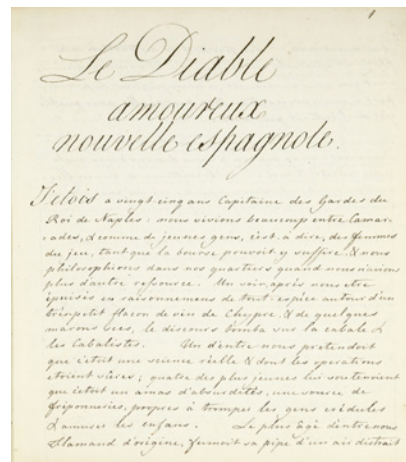 1
Le Diable
amoureux
nouvelle espagnole.
J'etois a vingt cinq ans Capitaine des Gardes du
Roi de Naples : nous vivions beaucoup entre Camar-
-ades, & comme de jeunes gens, c'est à dire, des femmes
du jeu, tant que la bourse pouvoit y suffire & nous
philosophions dans nos quartiers quand nous n'avions
plus d'autre ressource. Un soir, après nous etre
épuisés en raisonnemens de tout espèce autour d'un
très petit flacon de vin de Chypre & de quelques
marons secs, le discours tomba sur la cabale &
les Cabalistes. Un d'entre nous prétendoit
que c'étoit une science réelle & dont les operations
etoient sûres ; quatre des plus jeunes lui soutenoient
que c'étoit un amas d'absurdités, une source de
friponneries, propres à tromper les gens crédules
& amuser les enfans. Le plus âgé d'entre nous
Flamand d'origine, fumoit sa pipe d'un air distrait